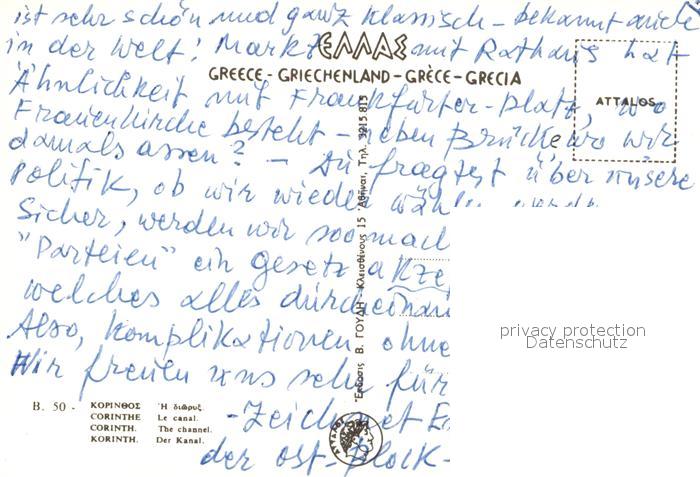 ist sehr schön und ganz klassisch - bekannt auch
in der Welt! Markt mit Rathaus hat
ΕΛΛΑΣ
GREECE - GRIECHENLAND - GRÈCE - GRECIA
ATTALOS
Ähnlichkeit mit Frankfurter-platz, wo
Frauenkirche besteht - neben Brücke wo wir
damals assen? - Du fragtest über unsere
Politik, ob wir wieder
Sicher, werden wir
"Parteien" ein Gesetz
welches alles
Also, Komplikationen ohne
Wir freuen uns sehr für
-Zeichnet
der Ost-Block-
Ἔκδοσις Β. ΓΟΥΔΗ Κλεισθένους 15 Ἀθῆναι, Τηλ. 3215.813
privacy protection
Datenschutz
B. 50 - ΚΟΡΙΝΘΟΣ Ἡ διῶρυξ.
CORINTHE Le canal.
CORINTH. The channel.
KORINTH. Der Kanal.